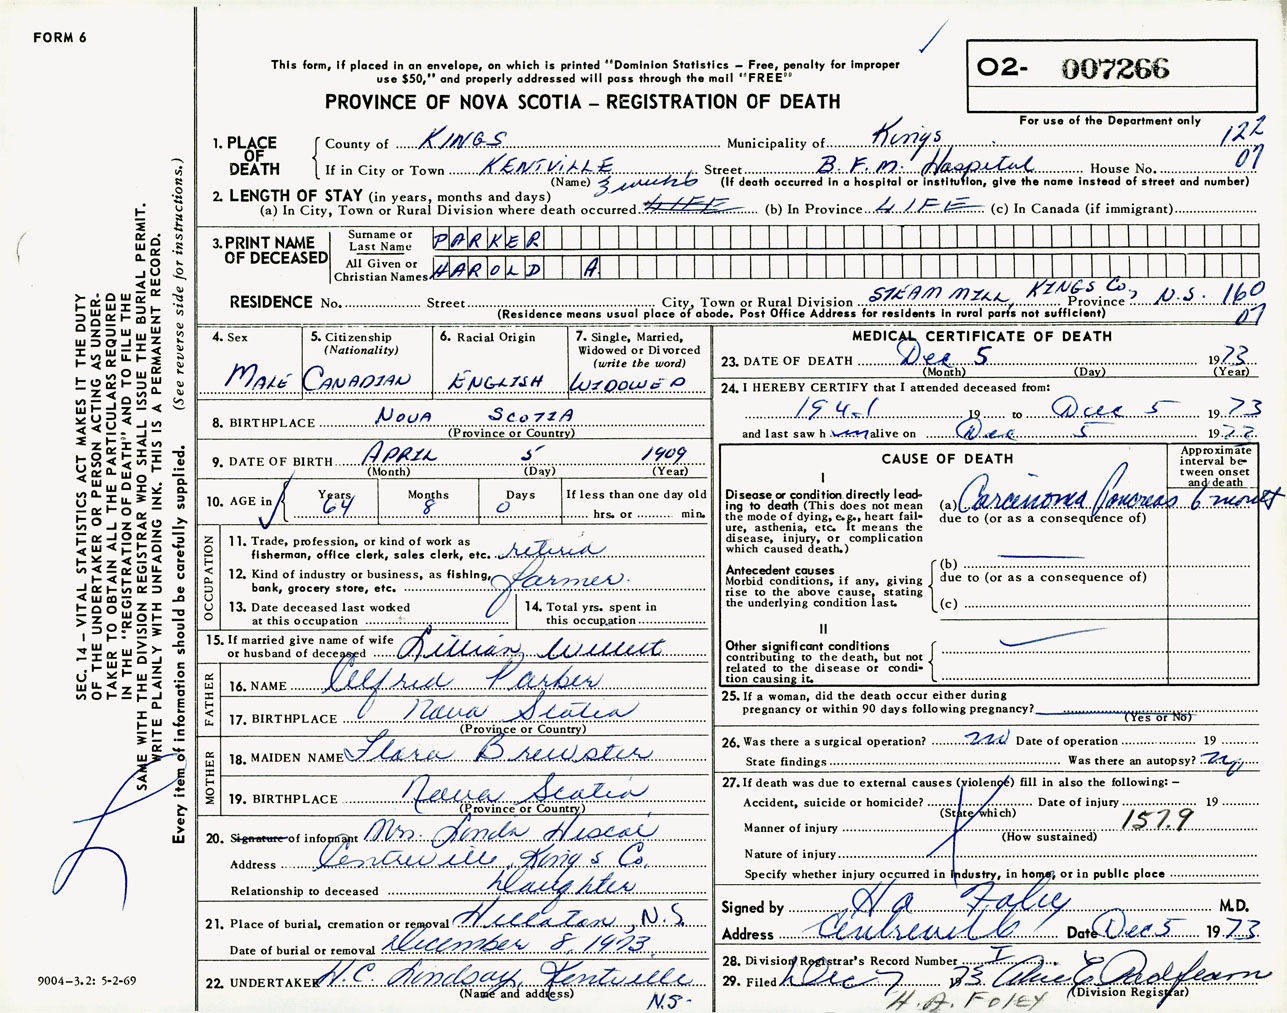 FORM 6
This form, if placed in an envelope, on which is printed "Dominion Statistics – Free, penalty for improper
use $50," and properly addressed will pass through the mail "FREE"
PROVINCE OF NOVA SCOTIA – REGISTRATION OF DEATH
O2- 007266
For use of the Department only
122
07
1. PLACE OF DEATH
County of KINGS Municipality of Kings
If in City or Town KENTVILLE Street B.F.M. Hospital House No.
(Name) (If death occurred in a hospital or institution, give the name instead of street and number)
2. LENGTH OF STAY (in years, months and days) 3 weeks
(a) In City, Town or Rural Division where death occurred LIFE (b) In Province LIFE (c) In Canada (if immigrant)
3. PRINT NAME OF DECEASED
Surname or Last Name PARKER
All Given or Christian Names HAROLD A.
RESIDENCE No. Street City, Town or Rural Division STEAM MILL, KINGS Co, Province N.S. 160
07
(Residence means usual place of abode. Post Office Address for residents in rural parts not sufficient)
4. Sex MALE
5. Citizenship (Nationality) CANADIAN
6. Racial Origin ENGLISH
7. Single, Married, Widowed or Divorced (write the word) WIDOWED
8. BIRTHPLACE NOVA SCOTIA
(Province or Country)
9. DATE OF BIRTH APRIL 5 1909
(Month) (Day) (Year)
10. AGE in Years 64 Months 8 Days 0 If less than one day old hrs. or min.
OCCUPATION
11. Trade, profession, or kind of work as
fisherman, office clerk, sales clerk, etc. retired
12. Kind of industry or business, as fishing,
bank, grocery store, etc. farmer.
13. Date deceased last worked
at this occupation
14. Total yrs. spent in
this occupation
15. If married give name of wife
or husband of deceased Lillian Willett
FATHER
16. NAME Alfred Parker
17. BIRTHPLACE Nova Scotia
(Province or Country)
MOTHER
18. MAIDEN NAME Flora Brewster
19. BIRTHPLACE Nova Scotia
(Province or Country)
20. Signature of informant Mrs. Linda
Address Centreville, Kings Co.
Relationship to deceased Daughter
21. Place of burial, cremation or removal Hillaton, N.S
Date of burial or removal December 8, 1973
22. UNDERTAKER H.C. Lindsay, Kentville
(Name and address)
N.S.
MEDICAL CERTIFICATE OF DEATH
23. DATE OF DEATH Dec 5 1973
(Month) (Day) (Year)
24. I HEREBY CERTIFY that I attended deceased from:
1941 19 to Dec 5 1973
and last saw h im alive on Dec 5 1973
CAUSE OF DEATH
Approximate interval between onset and death
I
Disease or condition directly lead-
ing to death (This does not mean
the mode of dying, e.g., heart fail-
ure, asthenia, etc. It means the
disease, injury, or complication
which caused death.)
(a) Carcinoma Pancreas 6 months
due to (or as a consequence of)
Antecedent causes
Morbid conditions, if any, giving
rise to the above cause, stating
the underlying condition last.
(b)
due to (or as a consequence of)
(c)
II
Other significant conditions
contributing to the death, but not
related to the disease or condi-
tion causing it.
25. If a woman, did the death occur either during
pregnancy or within 90 days following pregnancy?
(Yes or No)
26. Was there a surgical operation? no Date of operation 19
State findings Was there an autopsy? no
27. If death was due to external causes (violence) fill in also the following: –
Accident, suicide or homicide? Date of injury 19
(State which)
Manner of injury 157.9
(How sustained)
Nature of injury
Specify whether injury occurred in industry, in home, or in public place
Signed by H A Foley M.D.
Address Centreville Date Dec 5 1973
28. Division Registrar's Record Number
29. Filed Dec 7 73
(Division Registrar)
H. A. FOLEY
SEC. 14 – VITAL STATISTICS ACT MAKES IT THE DUTY
OF THE UNDERTAKER OR PERSON ACTING AS UNDER-
TAKER TO OBTAIN ALL THE PARTICULARS REQUIRED
IN THE "REGISTRATION OF DEATH" AND TO FILE THE
SAME WITH THE DIVISION REGISTRAR WHO SHALL ISSUE THE BURIAL PERMIT.
WRITE PLAINLY WITH UNFADING INK. THIS IS A PERMANENT RECORD.
Every item of information should be carefully supplied. (See reverse side for instructions.)
9004-3.2: 5-2-69